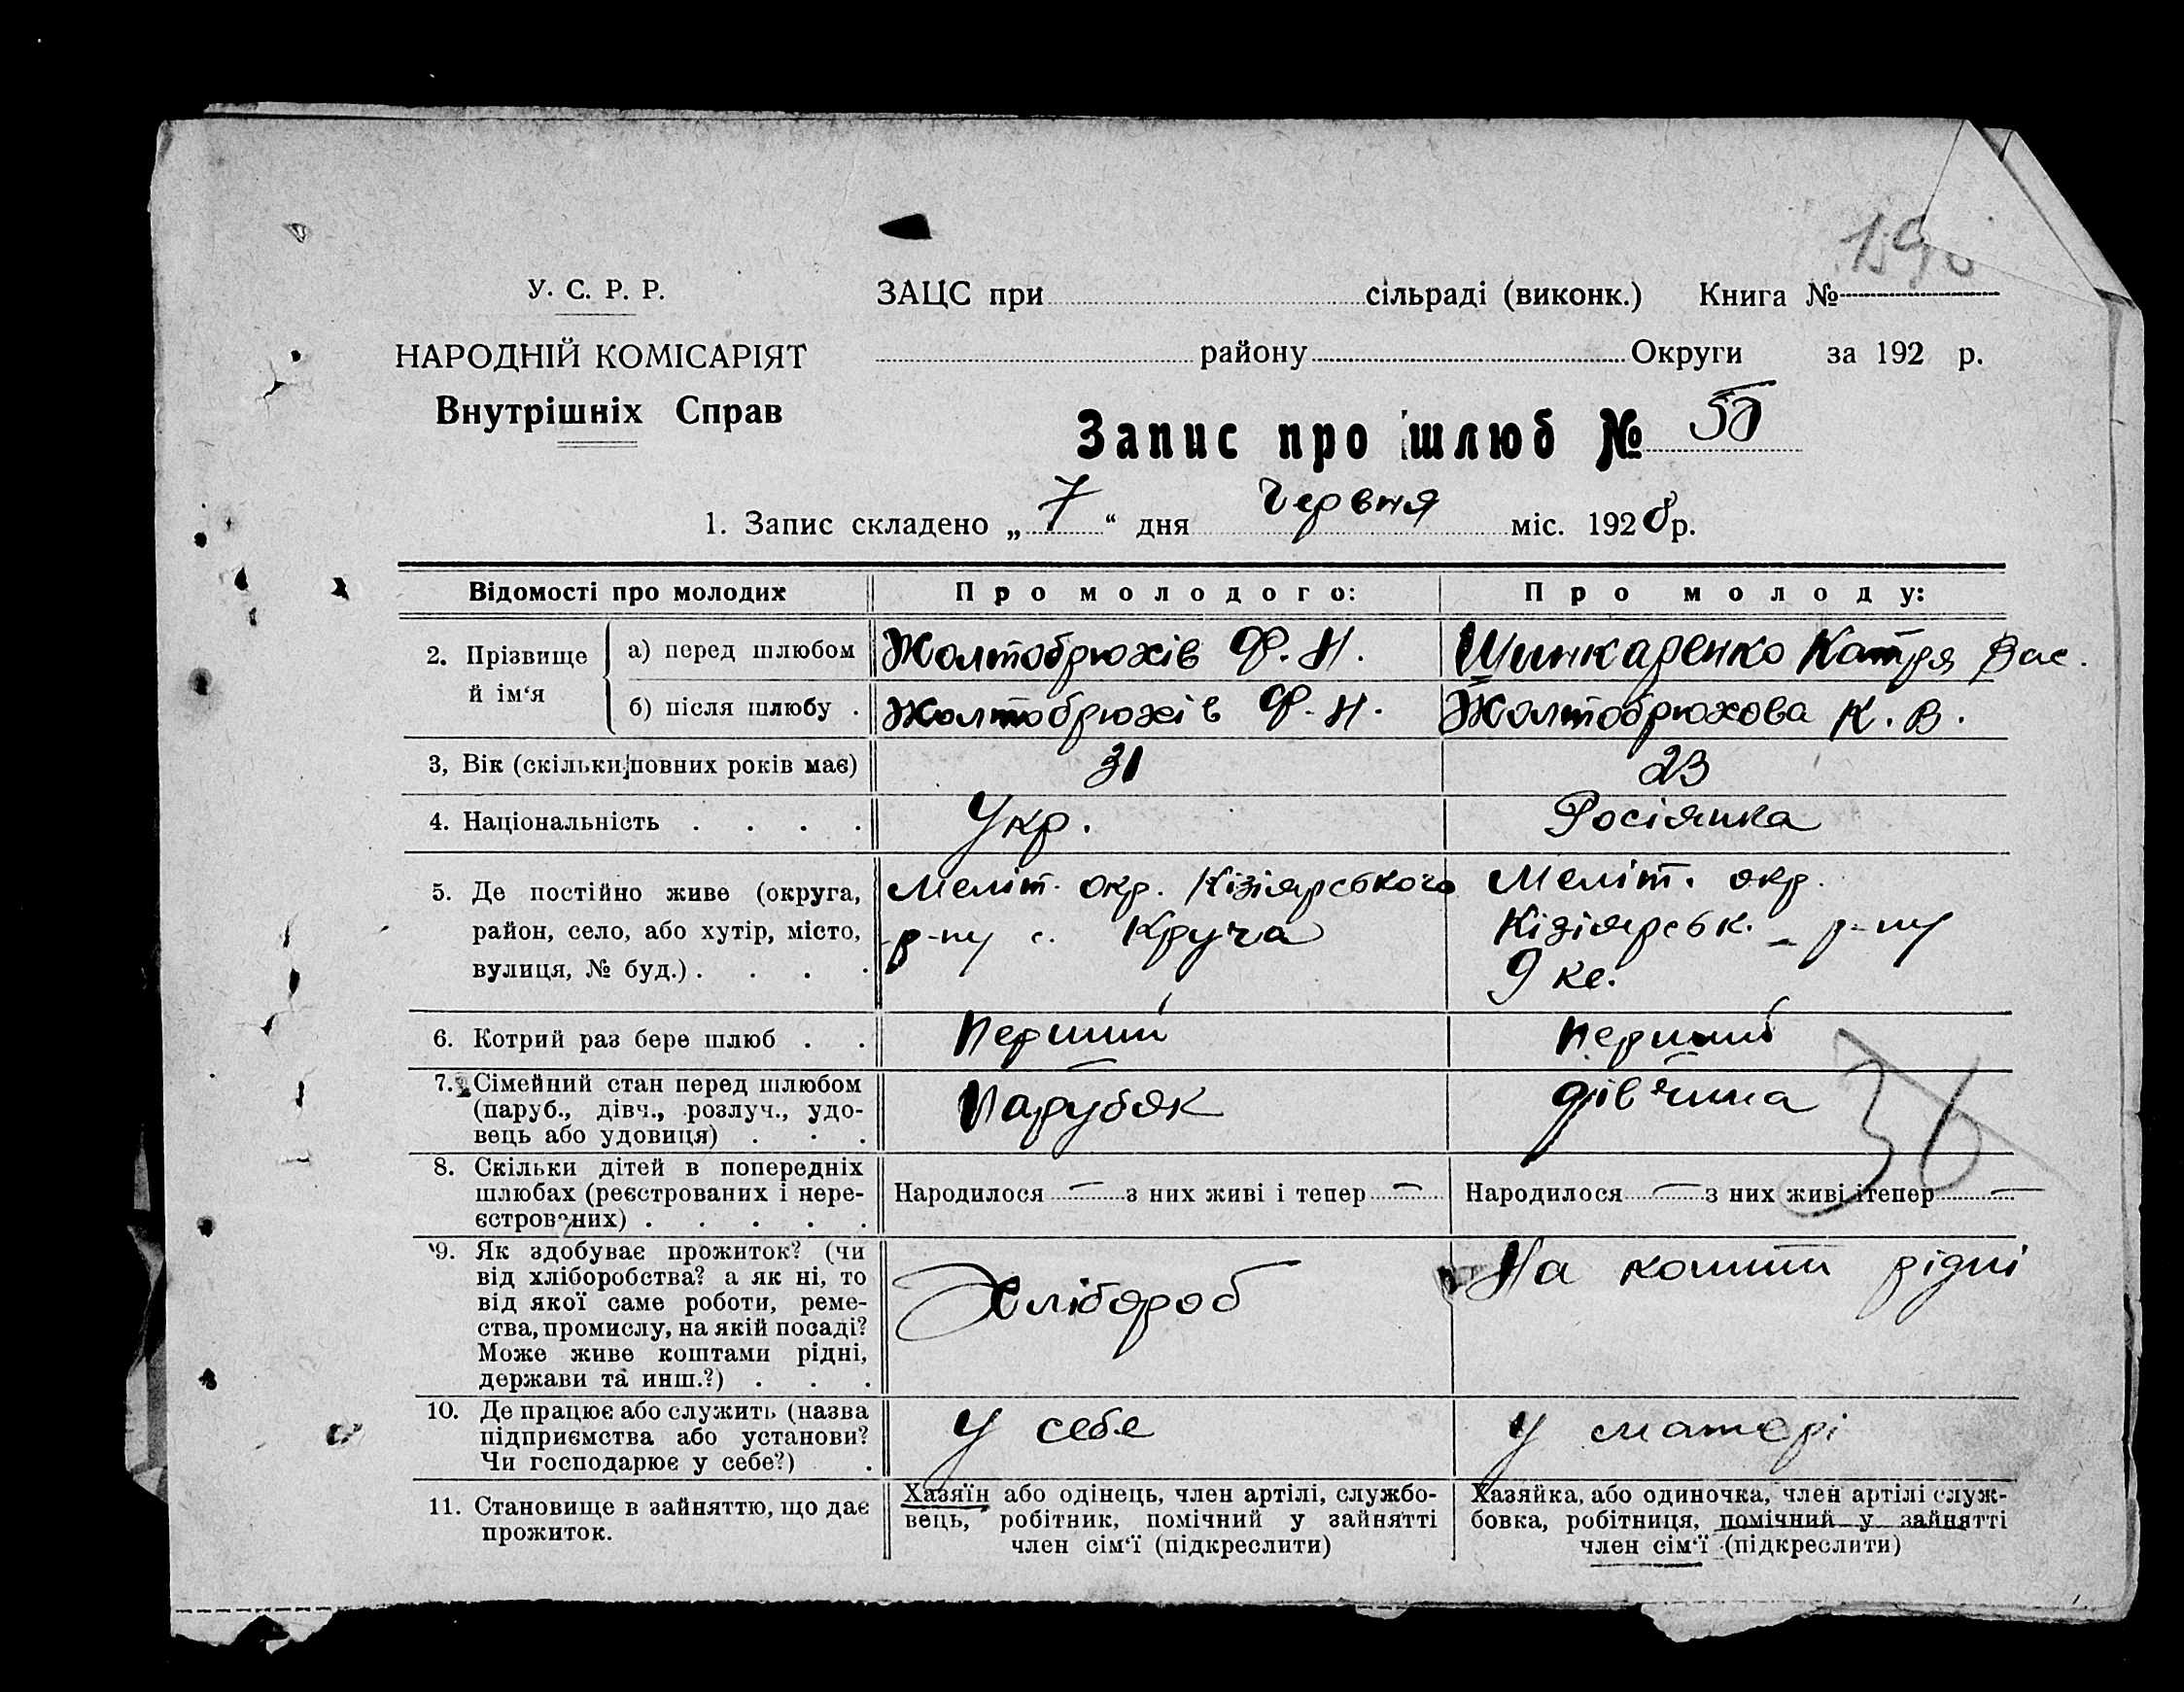 У. С. Р. Р.
НАРОДНІЙ КОМІСАРІЯТ
Внутрішніх Справ
ЗАЦС при сільраді (виконк.) Книга №
району Округи за 192 р.
Запис про шлюб № 50
1. Запис складено „7“ дня Червня міс. 1928 р.
Відомості про молодих Про молодого: Про молоду:
2. Прізвище й ім‘я
а) перед шлюбом Жолтобрюхів Ф. Н. Шинкаренко Катря Вас.
б) після шлюбу . Жолтобрюхів Ф. Н. Жолтобрюхова К. В.
3, Вік (скільки повних років має) 31 23
4. Національність . . . . Укр. Росіянка
5. Де постійно живе (округа,
район, село, або хутір, місто,
вулиця, № буд.) . . . .
Меліт. окр. Кізіярського
р-ну с. Круча
Меліт. окр.
Кізіярськ. р-ну
9 кв.
6. Котрий раз бере шлюб . . Перший Перший
7. Сімейний стан перед шлюбом
(паруб., дівч., розлуч., удо-
вець або удовиця) . . .
Парубок
дівчина
36
8. Скільки дітей в попередніх
шлюбах (реєстрованих і нере-
єстрованих) . . . . .
Народилося — з них живі і тепер —
Народилося — з них живі і тепер —
9. Як здобуває прожиток? (чи
від хліборобства? а як ні, то
від якої саме роботи, реме-
ства, промислу, на якій посаді?
Може живе коштами рідні,
держави та инш.?) . . .
Хлібороб
На кошти рідні
10. Де працює або служить (назва
підприємства або установи?
Чи господарює у себе?) .
У себе
У матері
11. Становище в зайняттю, що дає
прожиток.
Хазяїн або одінець, член артілі, службо-
вець, робітник, помічний у зайнятті
член сім‘ї (підкреслити)
Хазяйка, або одиночка, член артілі служ-
бовка, робітниця, помічний у зайнятті
член сім‘ї (підкреслити)